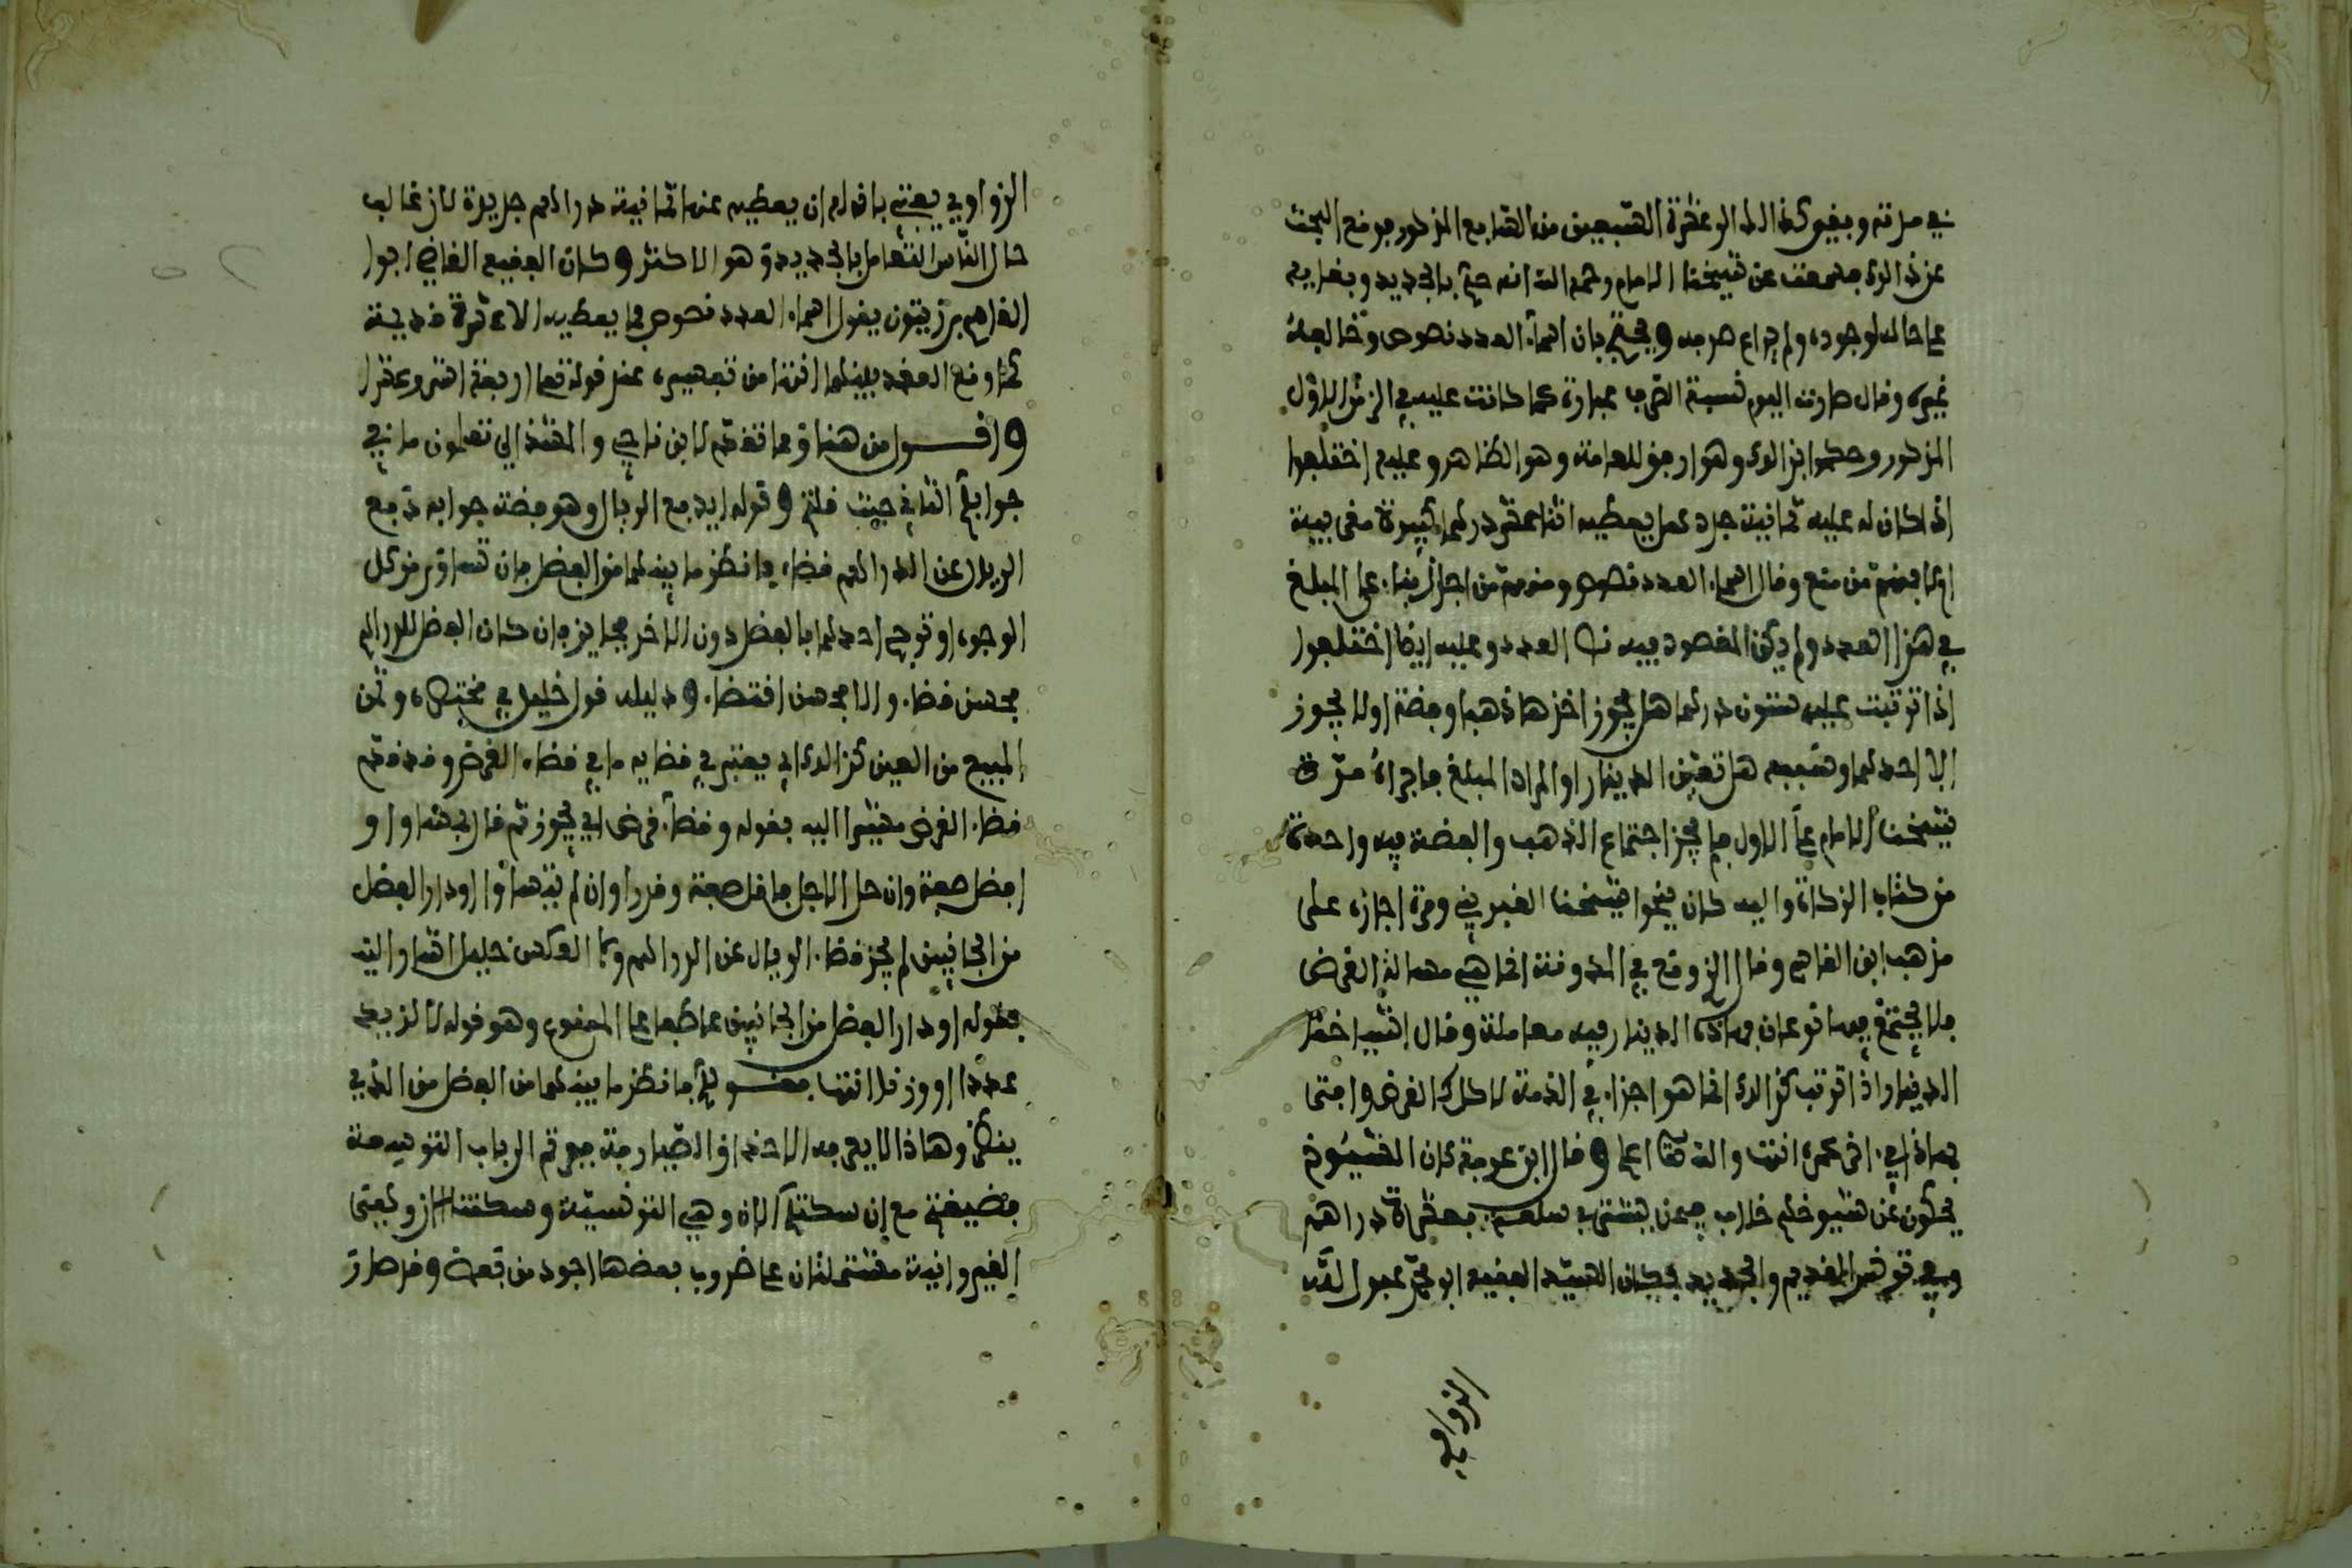 في مدته وبقي كذالك الى عشرة التسعين من القرن المذكور فوقع البحث
عن ذالك فسمعت عن شيخنا الامام رحمه الله انه حكم بالجديد وبقايه
على حاله لوجوده ولم يراع صرفه ويحتج بان اسماء العدد نصوص وخالفه
غيره وقال صارت اليوم نسبة الضرب عبارة كما كانت عليه في الزمن الاول
المذكور وحكموا بذالك وهو ارفق للعامة وهو الظاهر وعليه اختلفوا
اذا كان له عليه ثمانية جدد هل يعطيه اثنا عشر درهما كبيرة
بعضهم من منع وقال اسماء العدد نصوص ومنهم من اجاز بناء على المبلغ
في هذا العدد ولم يكن المقصود فيه نص العدد وعليه ايضا اختلفوا
اذا ترتبت عليه ستون درهما هل يجوز اخذها ذهبا وفضة او لا يجوز
الا احدهما وسببه هل تعين الدينار او المراد المبلغ فاجراه مرة
شيخنا الامام على الاول فلم يجز اجتماع الذهب والفضة فيه واحدة
من كتاب الزكاة واليه كان ينحوا شيخنا الغبريني ومرة اجازه على
مذهب ابن القاسم وقال الزوقع في المدونة انما هي مسالة القرض
فلا يجتمع فيها نوعان وهاذه الدينار فيه معاملة وقال
الدينار واذا ترتب كذالك انما هو اجزاء في الذمة لا كذلك القرض وافتى
بهاذا في اخر عمره انتهى والله تعالى اعلم وقال ابن عرفة كان الشيوخ
يحكون عن شيوخهم خلاف فيمن يشتري سلعة بعشرة دراهم
وفي تونس القديم والجديد فكان السيد الفقيه ابو محمد عبد الله
الزواوي
الزواوي يفتي باقوام ان يعطيه عنها ثمانية دراهم جديدة لان غالب
حال الناس التعامل بالجديدة وهو الاكثر وكان الفقيه القاضي ابوا
القاسم بن زيتون يقول اسماء العدد نصوص فما يعطيه الا عشرة قديمة
كما وقع العقد بينهما انتهى من تفسيره عند قوله تعالى اربعة اشهر وعشرا
واقول من هنا ومما تقدم لابن ناجي والمشذالي تعلمون ما في
جوابكم الثاني حيث قلتم وقوله يدفع الريال وهو فضة جوابه دفع
الريال عن الدراهم قضاء فانظر ما بينهما من الفضل فان تساوي من كل
الوجوه او ترجح احدهما بالفضل دون الاخر فجايز فان كان الفضل للدراهم
فحسن قضاء والا فحسن اقتضاء ودليله قول خليل في مختصره وثمن
المبيع من العين كذالك اي يعتبر في قضايه ما في قضاء القرض وقد قدم
قضاء القرض مشيرا اليه بقوله وقضاء قرض اي يجوز ثم قال بمساو او
افضل صفة وان حل الاجل باقل صفة وقدرا وان لم يتساوا او دار الفضل
من الجانبين لم يجز قضاء الريال عن الدراهم ولا العكس خليل اشار اليه
بقوله او دار الفضل من الجانبين عاطفا على الممنوع وهو قوله لا ازيد
عددا او وزنا انتهى فقولكم فانظر ما بينهما من الفضل من الذي
ينظر وهاذا لا يعرفه الا حذاق الصيارفة فعرفتم الرباب التونسية
فضيفتم مع ان سكتكم الان وهي التونسية وسكتنا الان وتعني
القيروانية مشتملتان على ضروب بعضها اجود من بعض وقد صارت